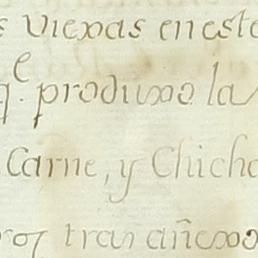 s viexas en este
q.e produxo la
Carne, y Chicha
tras añexo